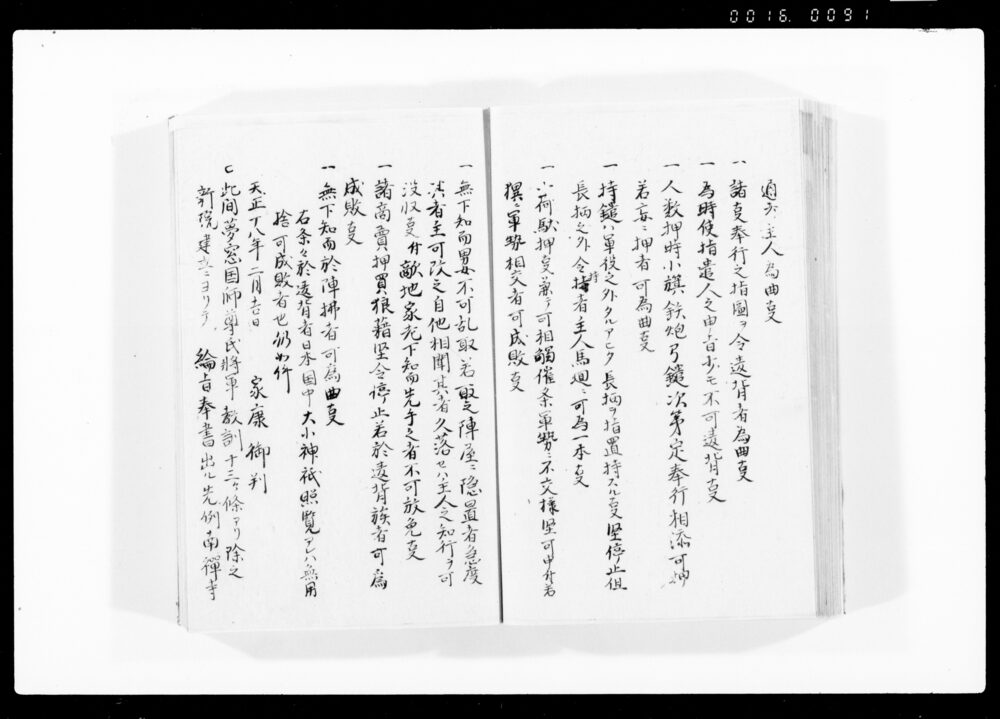 0016. 0091
過分ニ主人為曲事
一 諸事奉行之指圖ヲ令違背者為曲事
一 為時使指遣人之申旨少モ不可違背事
一 人数押時小旗鉄炮弓鑓次第定奉行相添可押
若妄ニ押者可為曲事
一 持鑓ハ軍役之外タルアヒタ長柄ヲ指置持スル事堅停止但
長柄之外令持者主人馬廻ニ可為一本事
一 小荷駄押事兼テ可相觸催条軍勢ニ不交様堅可申付若
猥ニ軍勢相交者可成敗事
一 無下知而男女不可乱取若取之陣屋ニ隠置者急度
其者主可改之自他相聞其者欠落セハ主人之知行ヲ可
没収事付敵地家先下知而先手之者不可放免事
一 諸商賣押買狼藉堅令停止若於違背族者可為
成敗事
一 無下知而於陣拂者可為曲事
右条々於違背者日本国中大小神祇照覧アレハ無用
捨可成敗者也仍如件
天正十八年二月吉日 家康御判
C此間夢窓国師尊氏将軍教訓十三ヶ條アリ除之
新院建立ニヨリテ 綸旨奉書出ル先例南禅寺